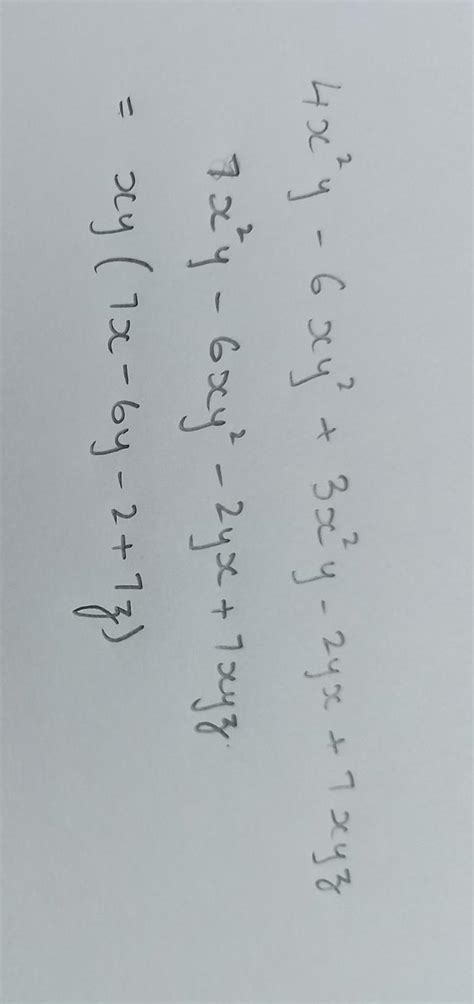 4x²y - 6xy² + 3x²y - 2yx + 7xyz
7x²y - 6xy² - 2yx + 7xyz
= xy(7x - 6y - 2 + 7z)